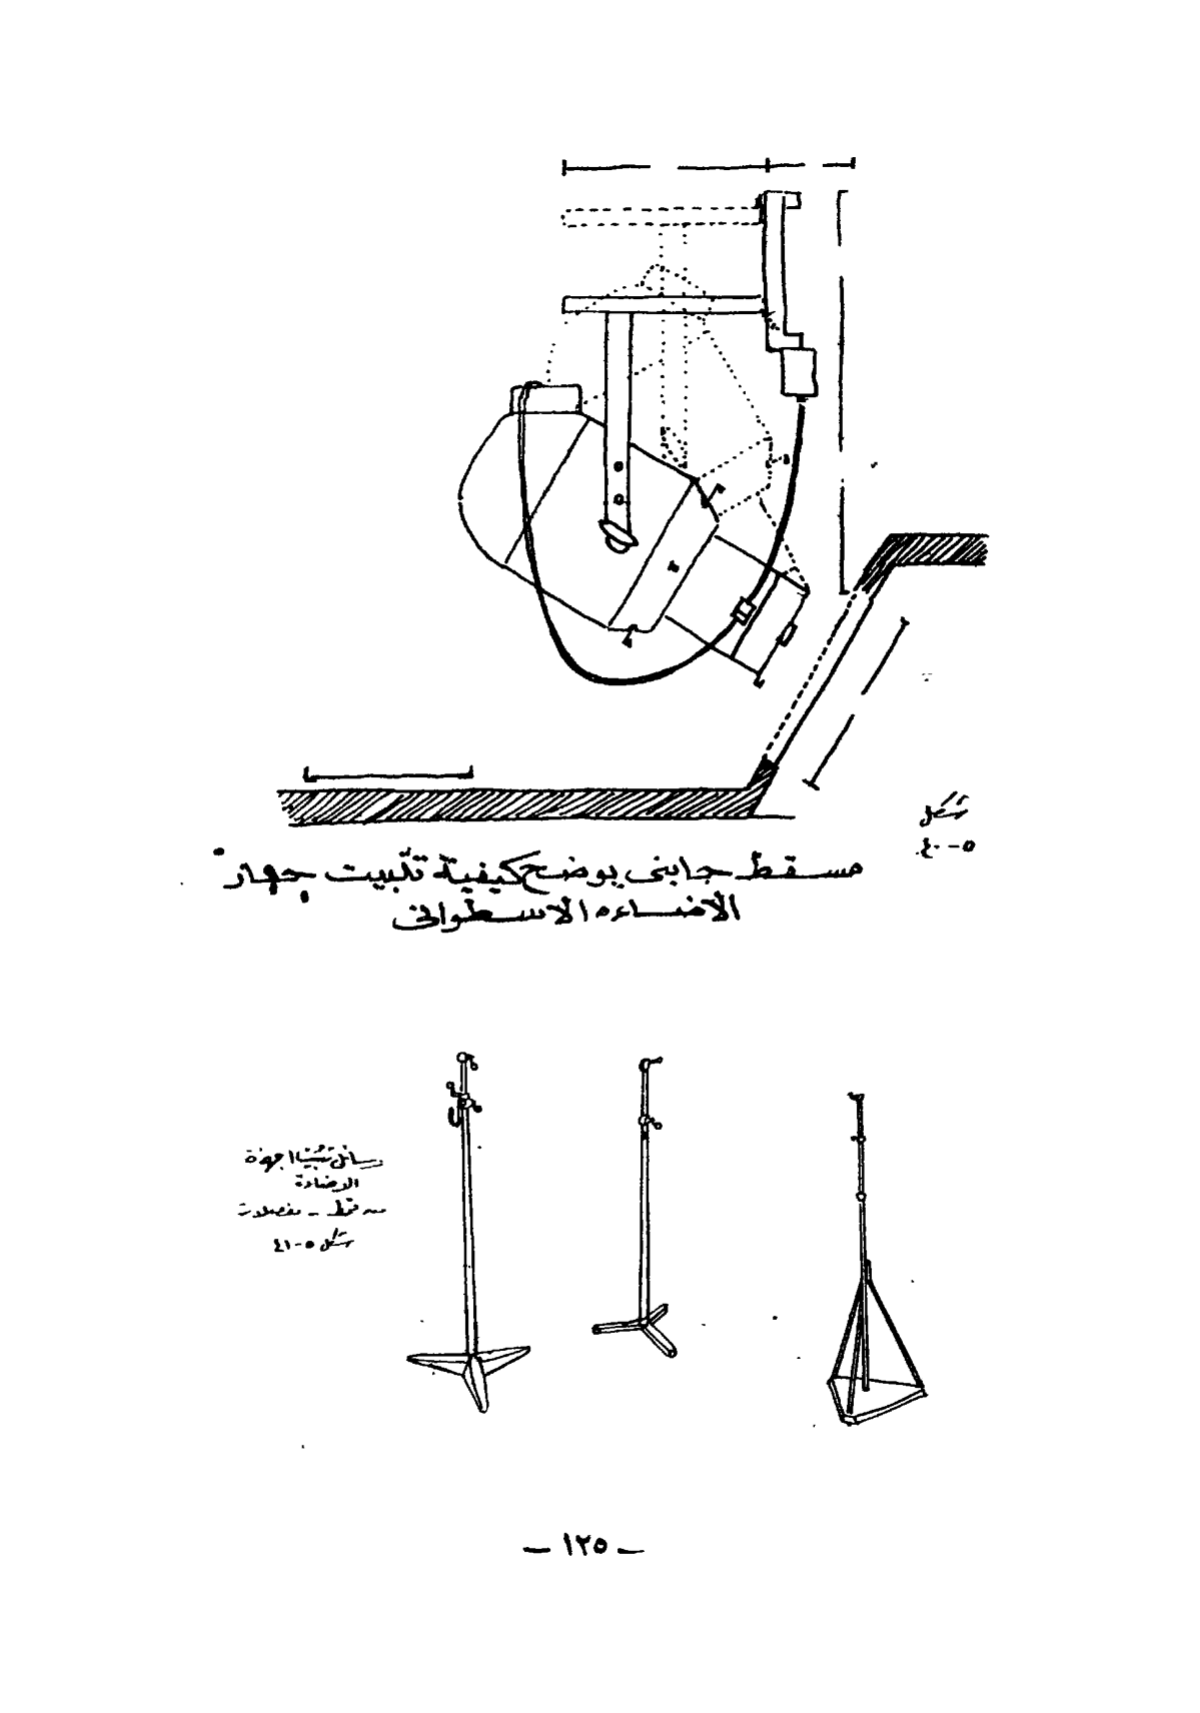 شكل
٥-٤٠
مسقط جانبى يوضح كيفية تثبيت جهاز
الاضاءه الاسطوانى
وسائل تثبيت اجهزة
الاضاءة
شكل ٥-٤١
– ١٢٥ –